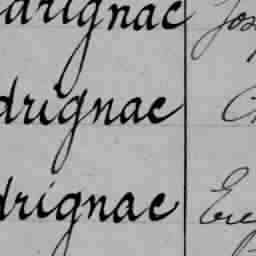 drignac Jos
drignac
drignac